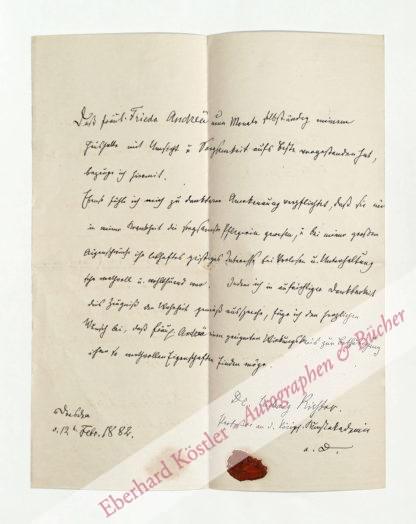 Daß Fräul. Frieda Andreä neun Monate selbständig meinem
Haushalte mit Umsicht u Sorgsamkeit aufs Beste vorgestanden hat,
bezeuge ich hiermit.
Ebenso fühle ich mich zu dankbarer Anerkennung verpflichtet, daß sie mir
in meiner Krankheit die sorgsamste Pflegerin gewesen, u bei meiner großen
ihr lebhaftes geistiges Interesse bei Vorlesen u. Unterhaltung
sehr werthvoll u. wohlthuend war. Indem ich in aufrichtiger Dankbarkeit
dies Zeugniß der Wahrheit gemäß ausspreche, füge ich den herzlichen
Wunsch bei, daß Fräul. Andreä einen geeigneten Wirkungskreis zur
ihrer so werthvollen Eigenschaften finden möge.
Dresden
d. 12 Febr. 1882.
Dr. Ludwig Richter.
Professor an d. Königl. Kunstakademie
a. D.
Eberhard Köstler - Autographen & Bücher